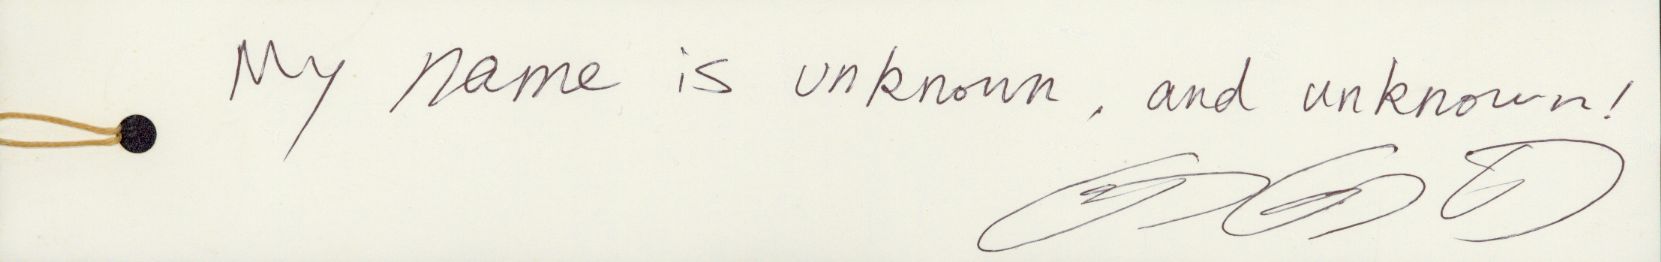 My name is unknown, and unknown!